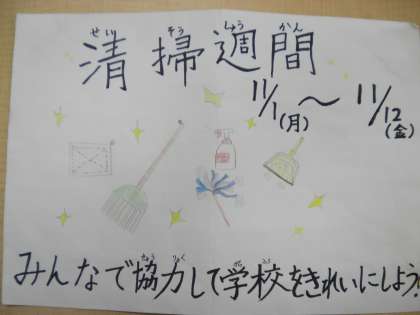 せい そう しゅう かん
清掃週間
11/1(月)～11/12(金)
きょう りょく がっ こう
みんなで協力して学校をきれいにしよう